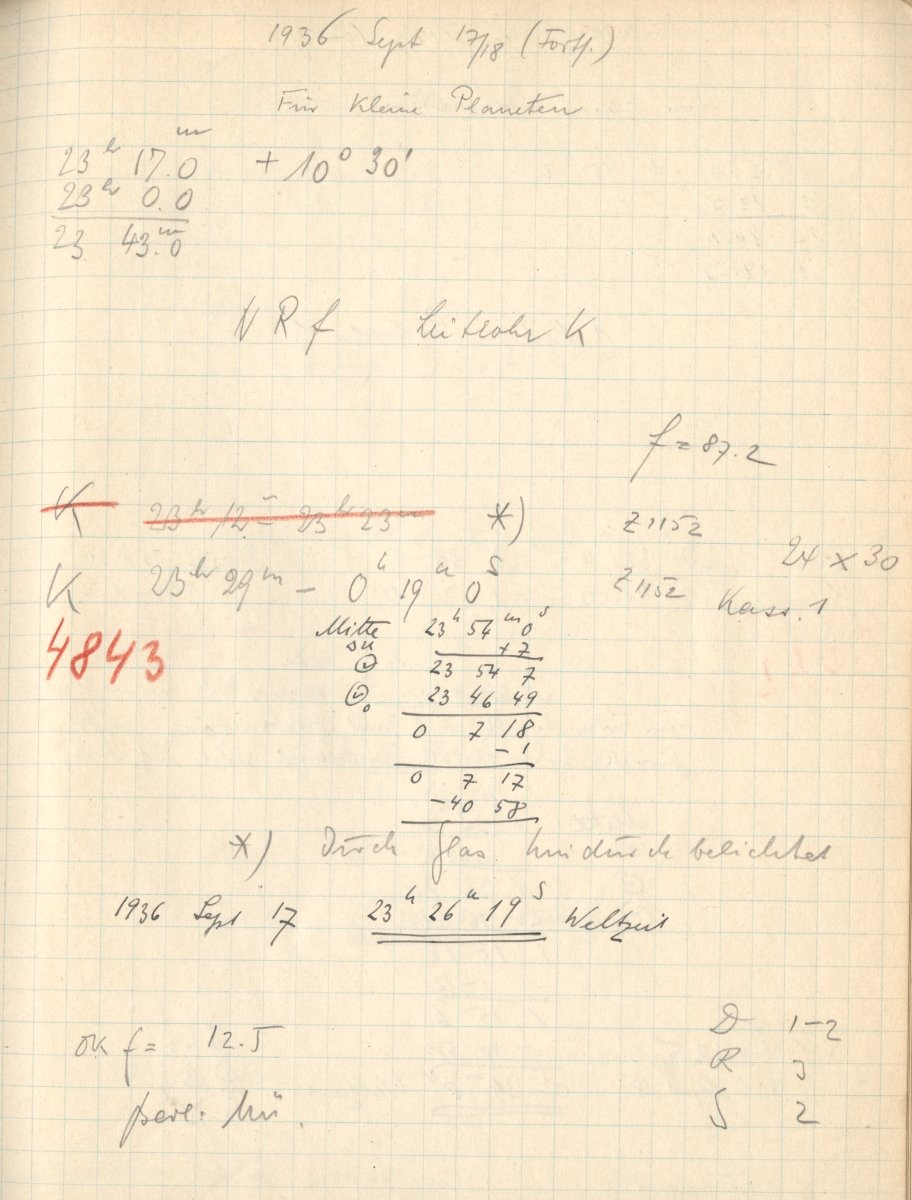 1936 Sept 17/18 (Forts.)
Für Kleine Planeten
23ʰʳ 17.0ᵐ + 10° 30'
23ʰʳ 0.0
23 43.0ᵐ
N R f Leitrohr K
f = 87.2
K 23ʰʳ 12ᵐ - 23ʰʳ 23ᵐ *) Z 1152
24 x 30
K 23ʰʳ 29ᵐ - 0ʰ 19ᵐ 0ˢ Z 1152 Kass. 1
4843
Mitte 23ʰ 54ᵐ 0ˢ
su + 7
23 54 7
23 46 49
0 7 18
- 1
0 7 17
- 40 58
*) Durch Glas hindurch belichtet
1936 Sept 17 23ʰ 26ᵐ 19ˢ Weltzeit
D 1-2
OK f = 12.5
R 3
S 2